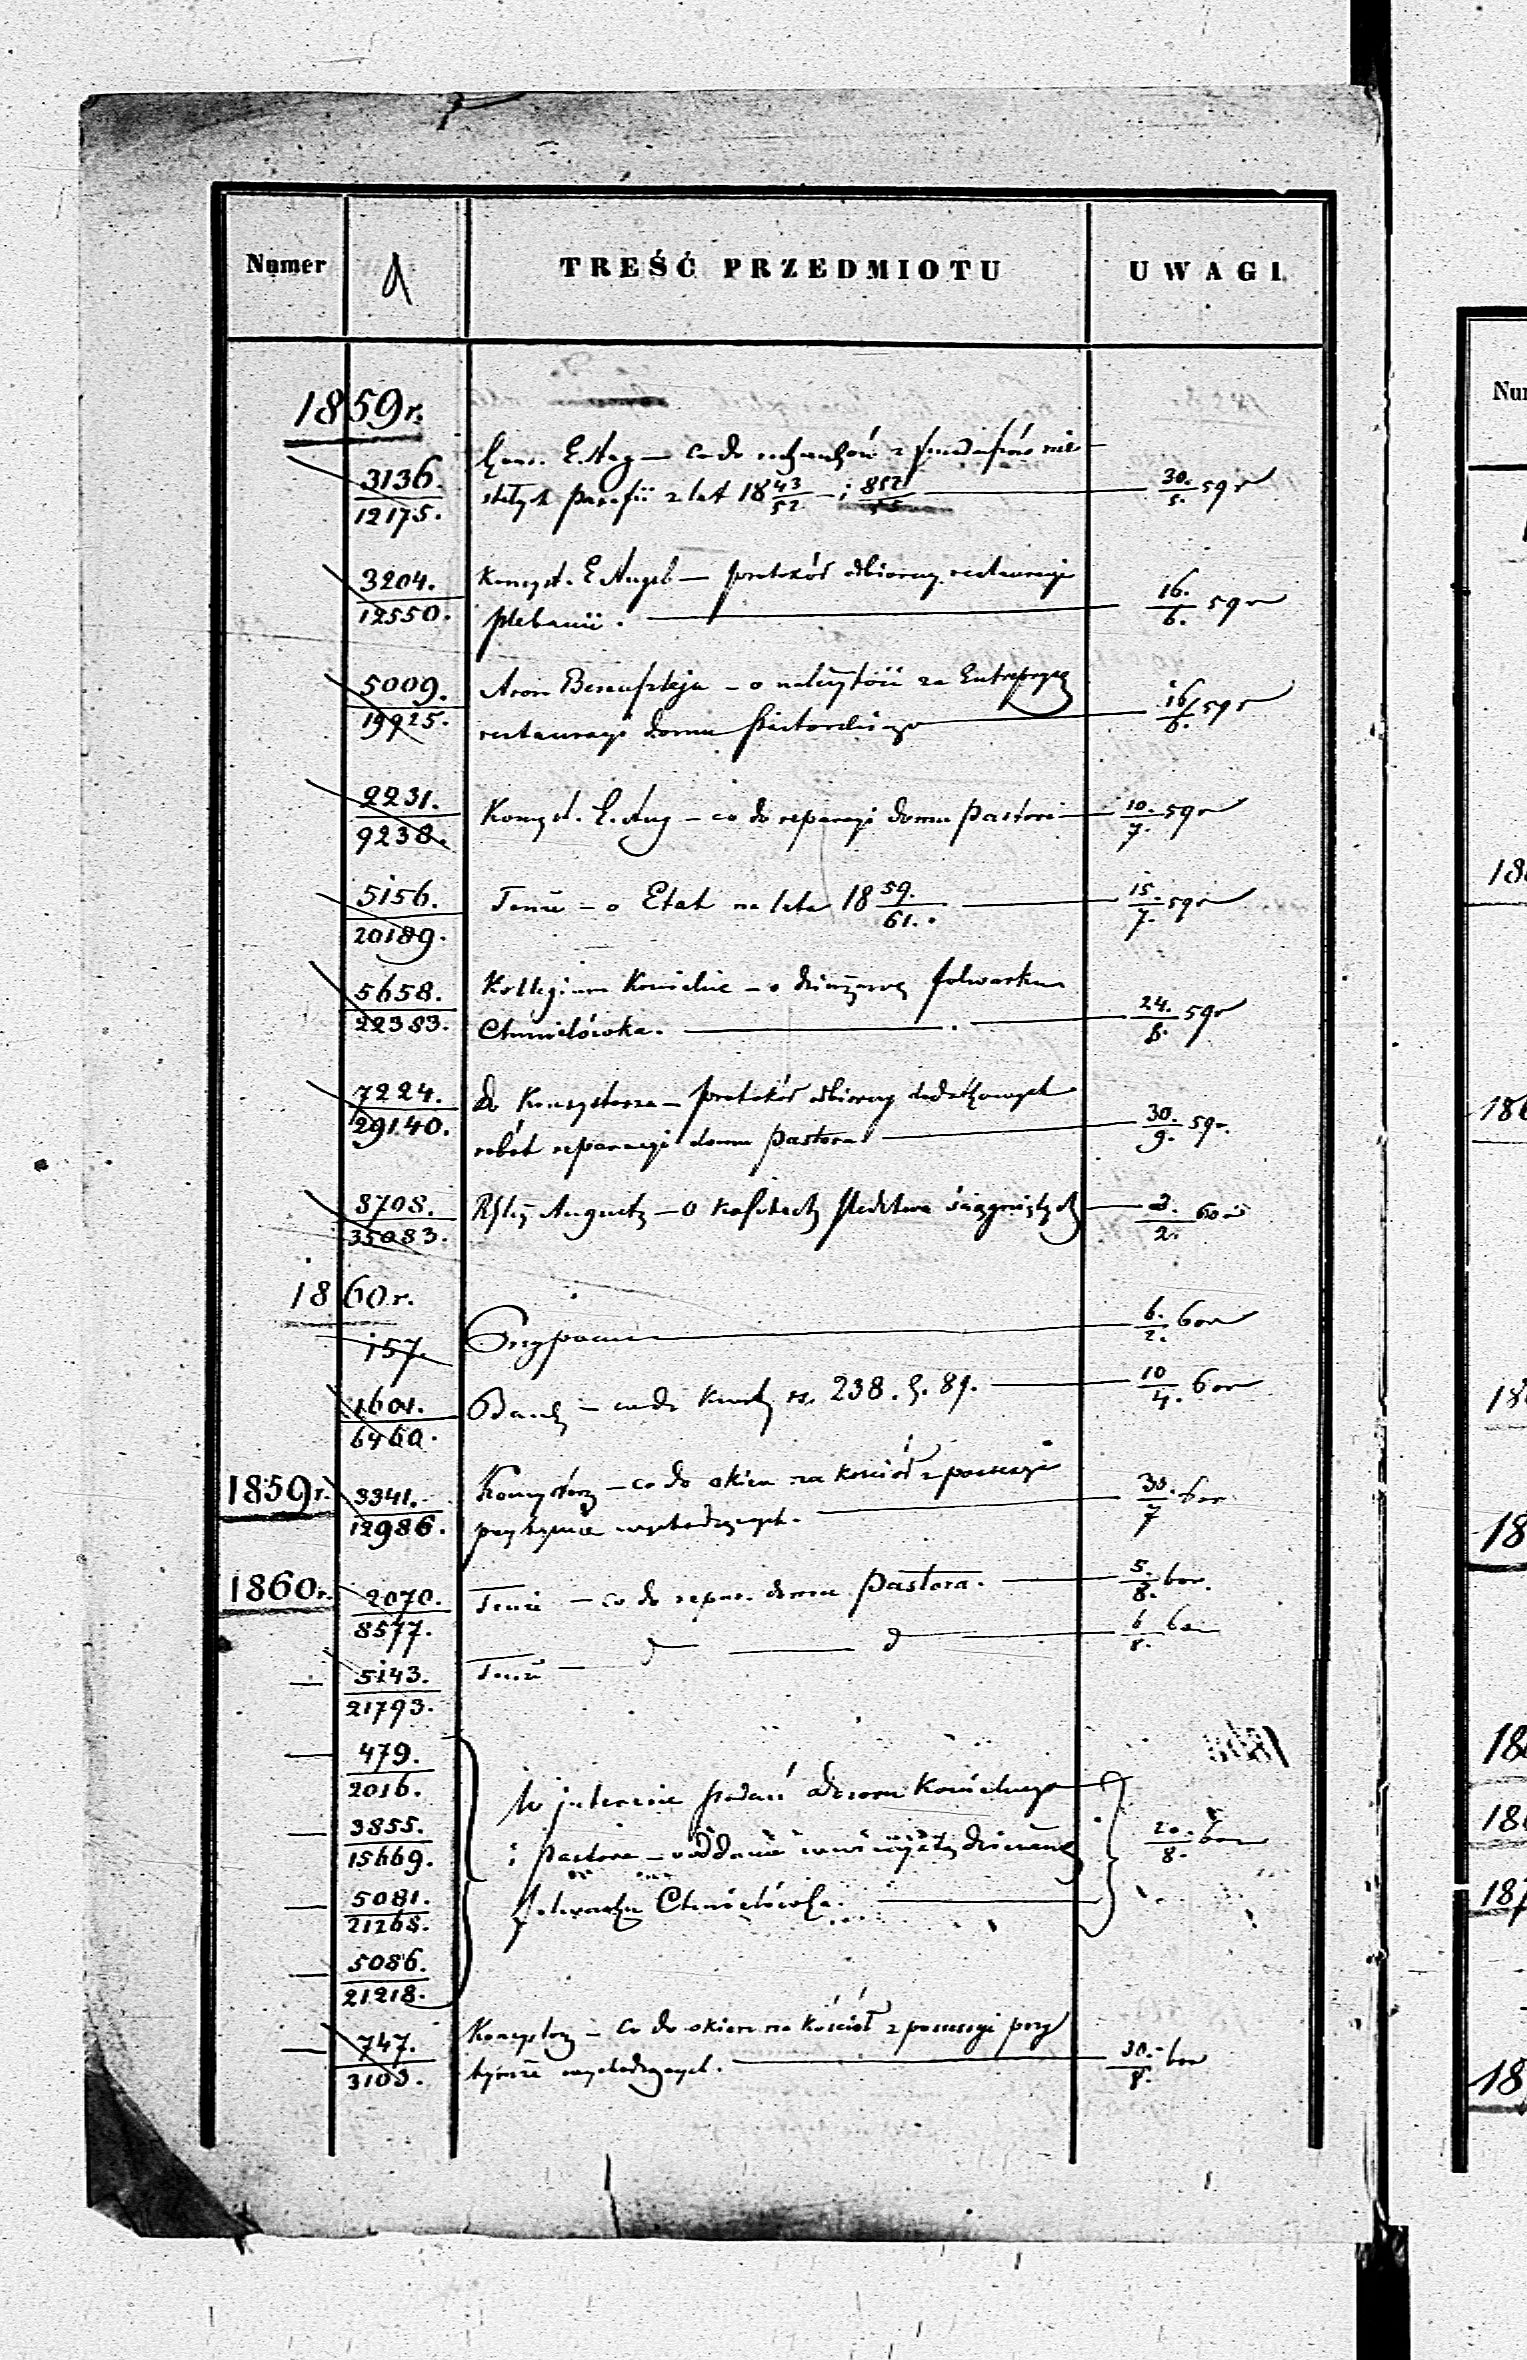 Numer
TREŚĆ PRZEDMIOTU
UWAGI
1859 r.
3136.
12175.
Kons. E. Aug — co do rachunków z funduszów nie
stałych parafii z lat 18 43/52 — i 852/55
30./5. 59 r
3204.
12550.
Konsyst. E Augsb — protokół odbiorczy restauracyi
plebanii.
16./6. 59 r
5009.
19925.
Aron — o należytość za Entrepryzę
restauracyi domu Pastorskiego
16/6. 59 r
2231.
9238.
Konsyst. E. Aug — co do reparacyi domu Pastora
10./7. 59 r
5156.
20189.
Tenże — o Etat na lata 18 59./61.
15./7. 59 r
5658.
22383.
Kollegium Kościelne — o dzierżawę folwarku
Chmielówka.
24./8. 59 r
7224.
29140.
do Konsystorza — protokół odbiorczy dodatkowych
robót reparacyi domu Pastora
30./9. 59 r.
8708.
35083.
August — o kosztach śledztwa ściągniętych
2. 60 r
1860 r.
157.
6./2. 60 r
1601.
6460.
Bank — co do kwoty rs. 238. k. 89.
10/4. 60 r
1859 r.
3341.
12986.
Konsystorz — co do okien na kościół z posesyi
przytymże wychodzących.
30./7 60 r
1860 r.
2070.
8577.
Tenże — co do repar. domu Pastora.
5./8. 60 r.
5143.
21793.
Tenże — d — d
6/8. 60 r
479.
2016.
3855.
15669.
5081.
21265.
5086.
21218.
W interesie podań dozoru Kościelnego
i Pastora — oddanie w dzierżawę
folwarku Chmielówka.
20./8. 60 r
747.
3103.
Konsystorz — co do okien na kościół z posesyi przy
tymże wychodzących.
30./8. 60 r